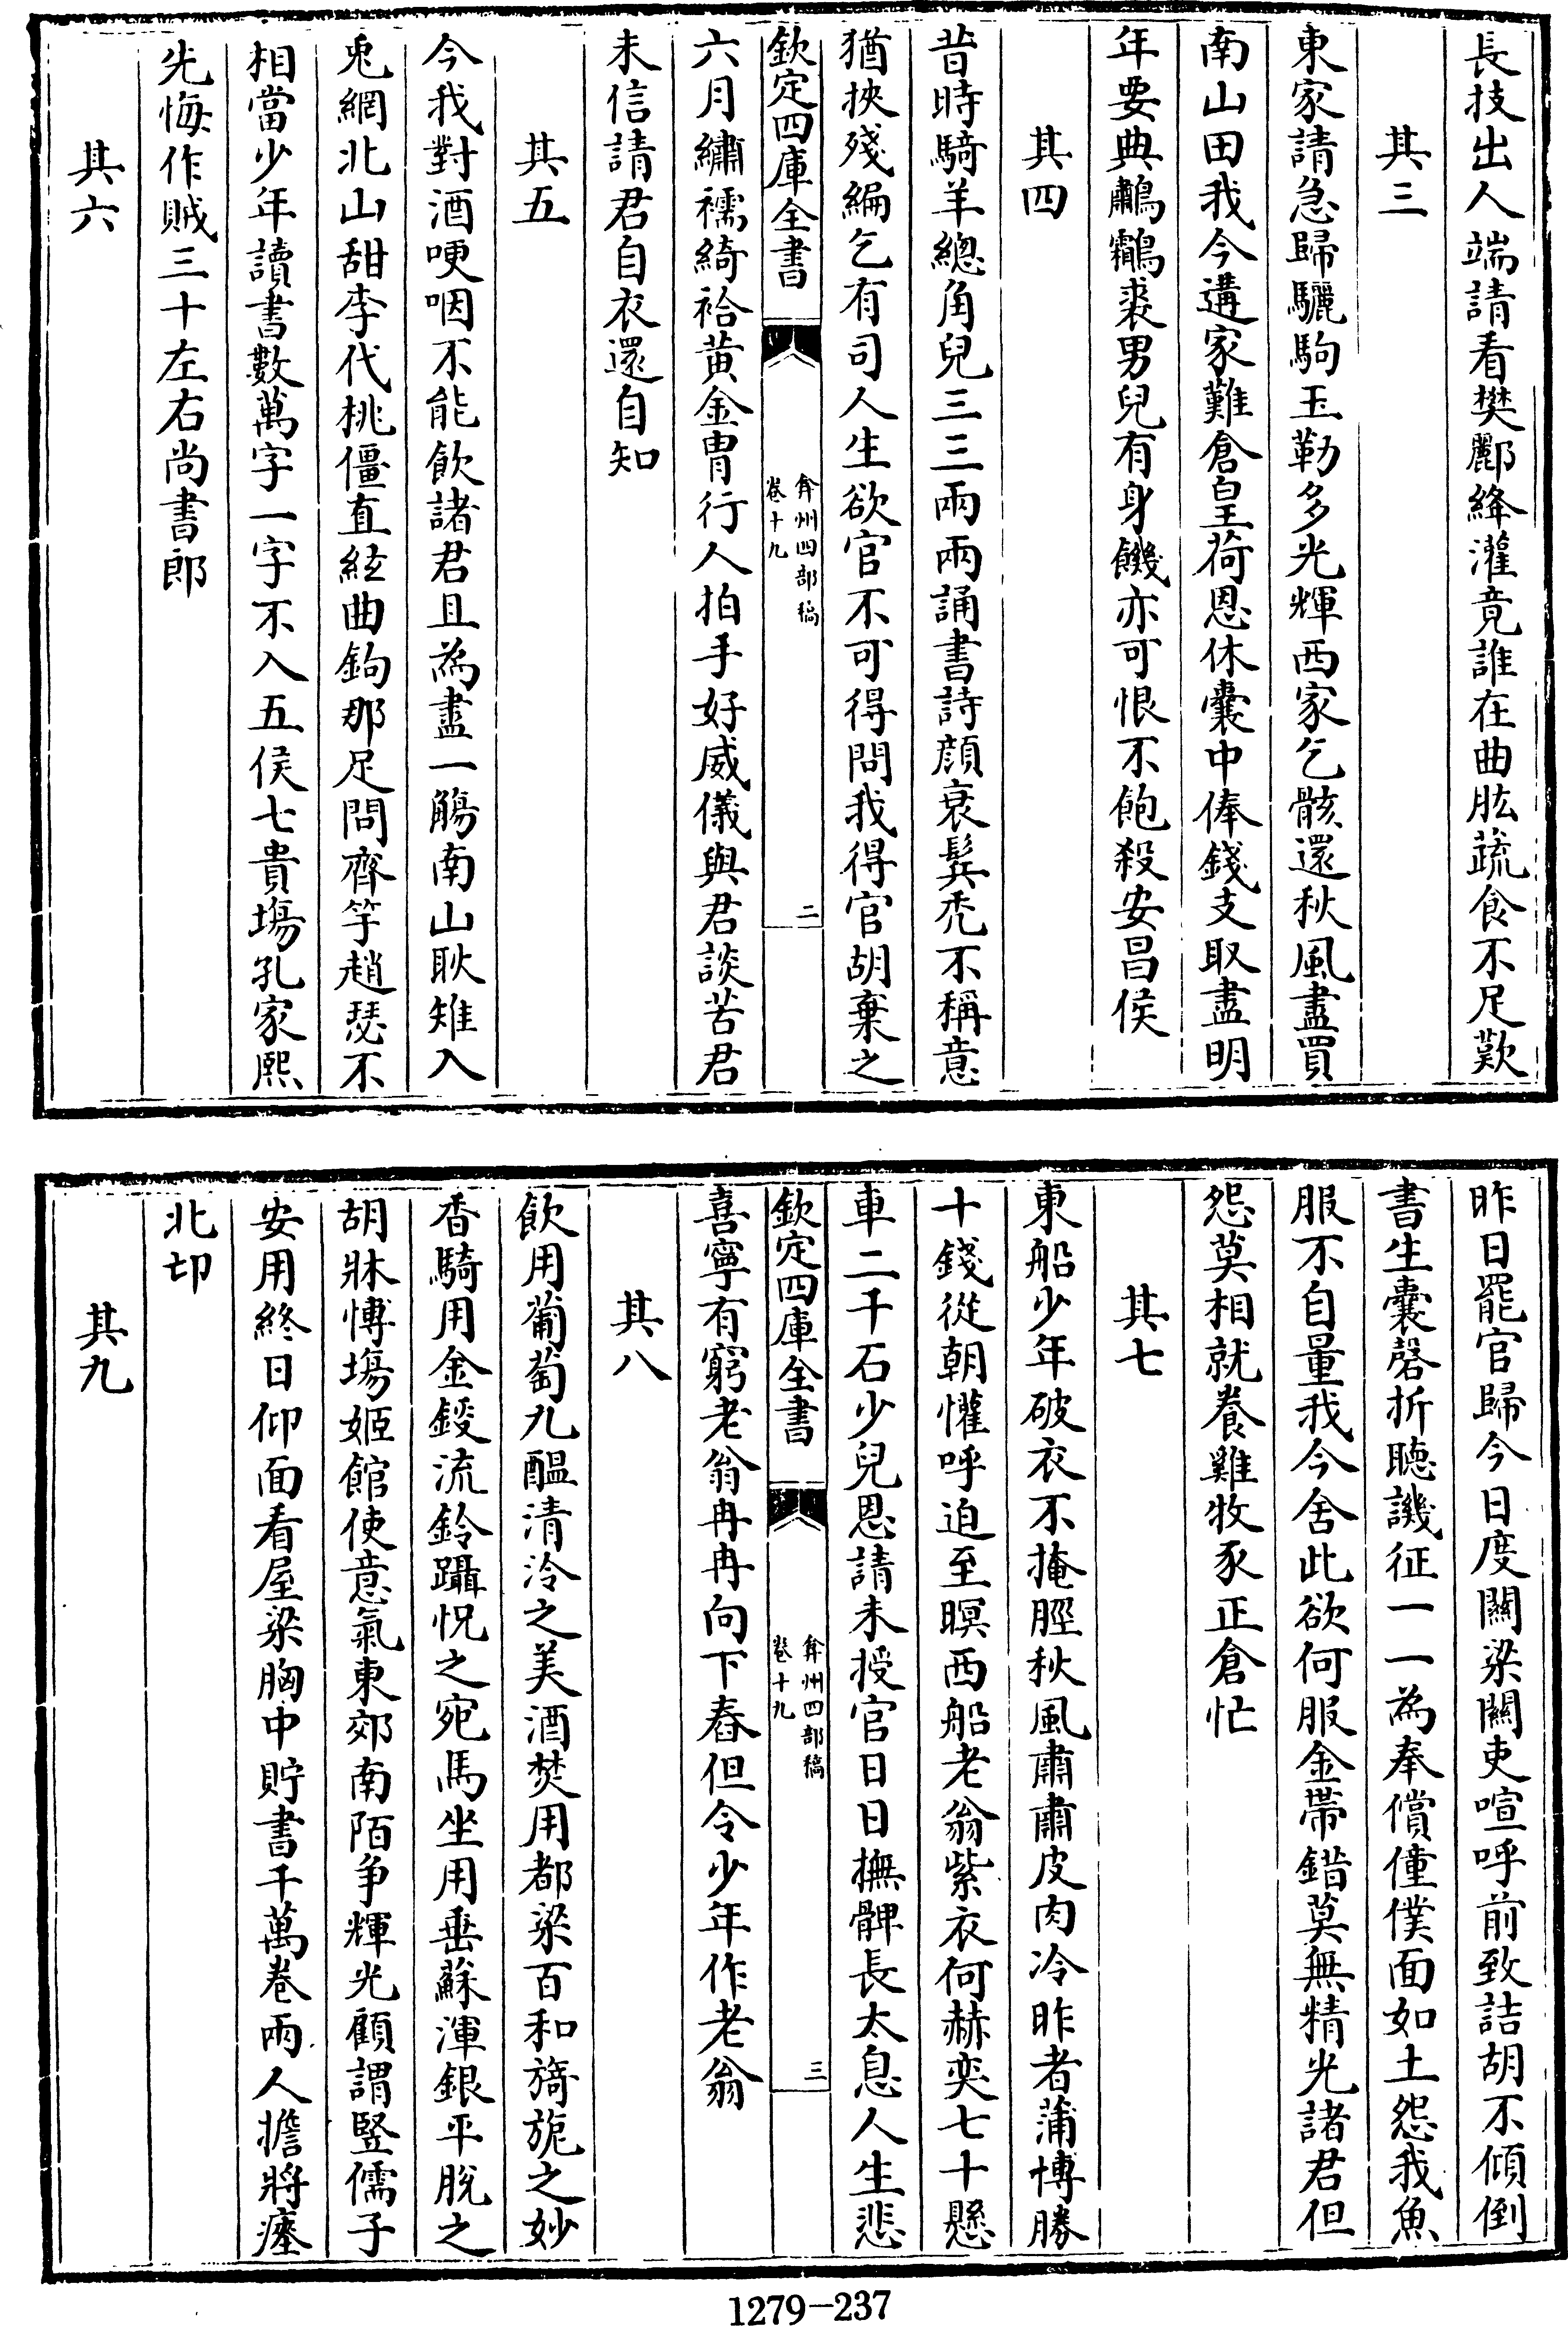 長技出人端請看樊酈絳灌竟誰在曲肱蔬食不足歎
其三
東家請急歸驪駒玉勒多光輝西家乞骸還秋風盡買
南山田我今遘家難倉皇荷恩休囊中俸錢支取盡明
年要典鷫鸘裘男兒有身饑亦可恨不飽殺安昌侯
其四
昔時騎羊總角兒三三兩兩誦書詩顔衰髩禿不稱意
猶挾殘編乞有司人生欲官不可得問我得官胡棄之
欽定四庫全書
弇州四部稿
卷十九
二
六月繡襦綺袷黃金冑行人拍手好威儀與君談苦君
未信請君自衣還自知
其五
今我對酒哽咽不能飲諸君且為盡一觴南山耿雉入
兎網北山甜李代桃僵直絃曲鉤那足問齊竽趙瑟不
相當少年讀書數萬字一字不入五侯七貴場孔家熙
先悔作賊三十左右尚書郎
其六
昨日罷官歸今日度關梁關吏喧呼前致詰胡不傾倒
書生囊磬折聽譏征一一為奉償僮僕面如土怨我魚
服不自量我今舍此欲何服金帶錯莫無精光諸君但
怨莫相就養雞牧豕正倉忙
其七
東船少年破衣不掩脛秋風肅肅皮肉冷昨者蒲博勝
十錢從朝懽呼迫至暝西船老翁紫衣何赫奕七十懸
車二千石少兒恩請未授官日日撫髀長太息人生悲
欽定四庫全書
弇州四部稿
卷十九
三
喜寧有窮老翁冉冉向下舂但令少年作老翁
其八
飲用葡萄九醖清泠之美酒焚用都梁百和旖旎之妙
香騎用金鋄流鈴躡怳之宛馬坐用垂蘇渾銀平脫之
胡牀博塲姬館使意氣東郊南陌爭輝光顧謂竪儒子
安用終日仰面看屋梁胸中貯書千萬卷兩人擔將瘞
北邙
其九
1279-237